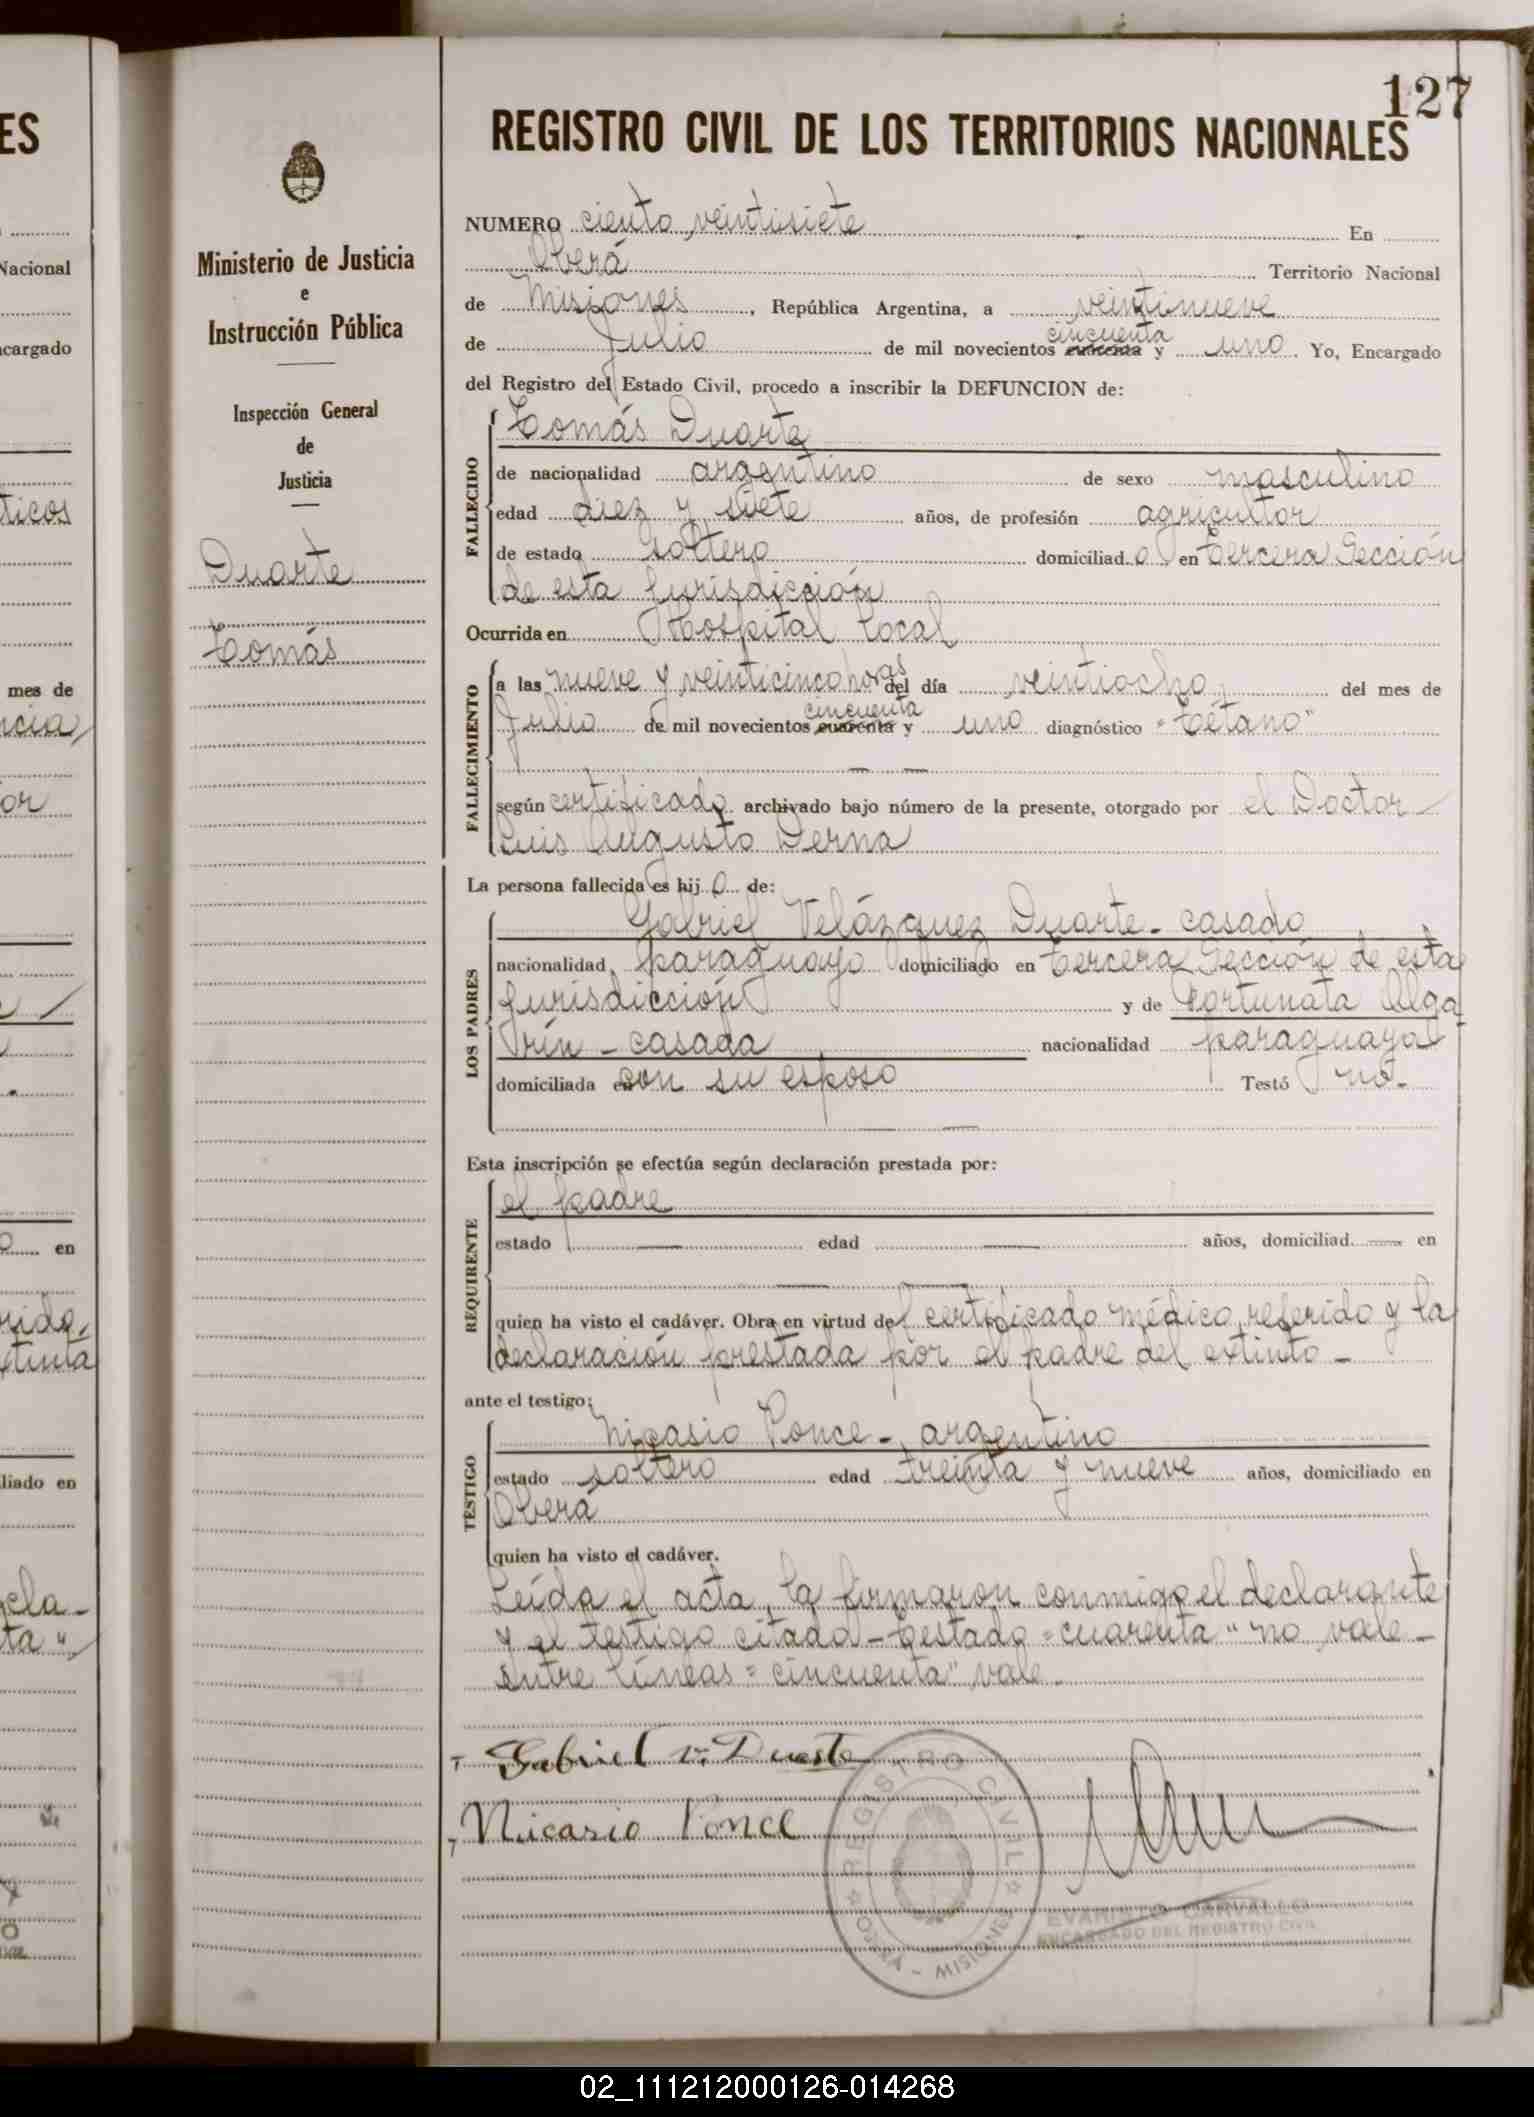 127
REGISTRO CIVIL DE LOS TERRITORIOS NACIONALES
Ministerio de Justicia
e
Instrucción Pública
Inspección General
de
Justicia
Duarte
Tomás
NUMERO ciento veintisiete En
Oberá Territorio Nacional
de Misiones, República Argentina, a veintinueve
de Julio de mil novecientos cuarenta cincuenta y uno. Yo, Encargado
del Registro del Estado Civil, procedo a inscribir la DEFUNCION de:
FALLECIDO
Tomás Duarte
de nacionalidad argentino de sexo masculino
edad diez y siete años, de profesión agricultor
de estado soltero domiciliad o en Tercera Sección
de esta Jurisdicción
Ocurrida en Hospital Local
FALLECIMIENTO
a las nueve y veinticinco horas del día veintiocho del mes de
Julio de mil novecientos cuarenta cincuenta y uno diagnóstico "Tétano"
según certificado archivado bajo número de la presente, otorgado por el Doctor
Luis Augusto Derna
La persona fallecida es hij o de:
LOS PADRES
Gabriel Velázquez Duarte - casado
nacionalidad paraguayo domiciliado en Tercera Sección de esta
Jurisdicción y de Fortunata Olga
Trín - casada nacionalidad paraguaya
domiciliada en con su esposo Testó no.-
Esta inscripción se efectúa según declaración prestada por:
REQUIRENTE
el padre
estado — edad — años, domiciliad — en
quien ha visto el cadáver. Obra en virtud del certificado médico referido y la
declaración prestada por el padre del extinto -
ante el testigo:
TESTIGO
Nicasio Ponce - argentino
estado soltero edad treinta y nueve años, domiciliado en
Oberá
quien ha visto el cadáver.
Leída el acta, la firmaron conmigo el declarante
y el testigo citado - testado = cuarenta" no vale -
Entre líneas = cincuenta" vale
Gabriel V. Duarte
Nicasio Ponce
REGISTRO CIVIL
OBERA - MISIONES
EVARISTO CARVALLO
ENCARGADO DEL REGISTRO CIVIL
02_111212000126-014268